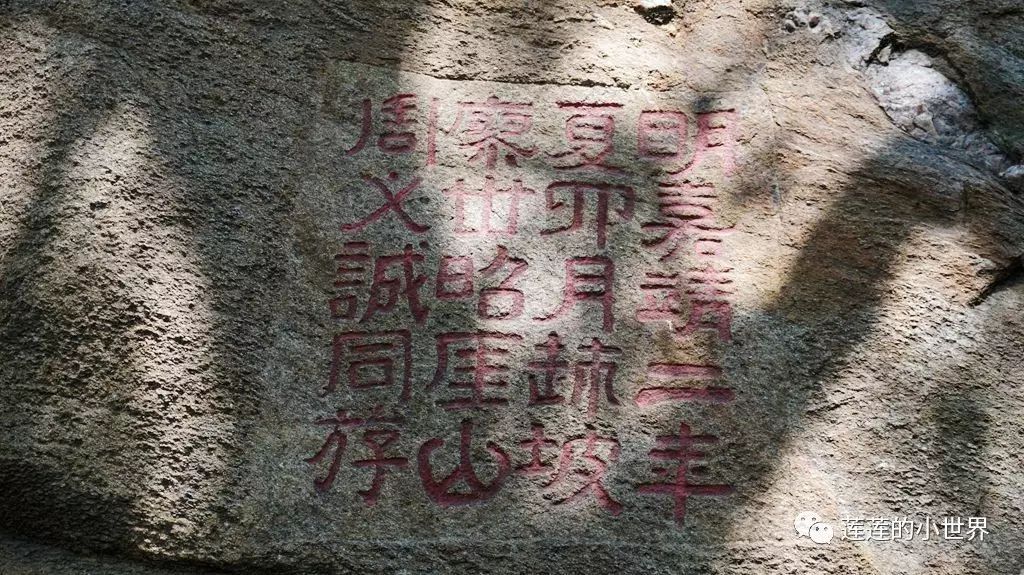 明嘉靖二年
夏卯月疎坡
廖世昭厓山
周文誠同斿
莲莲的小世界